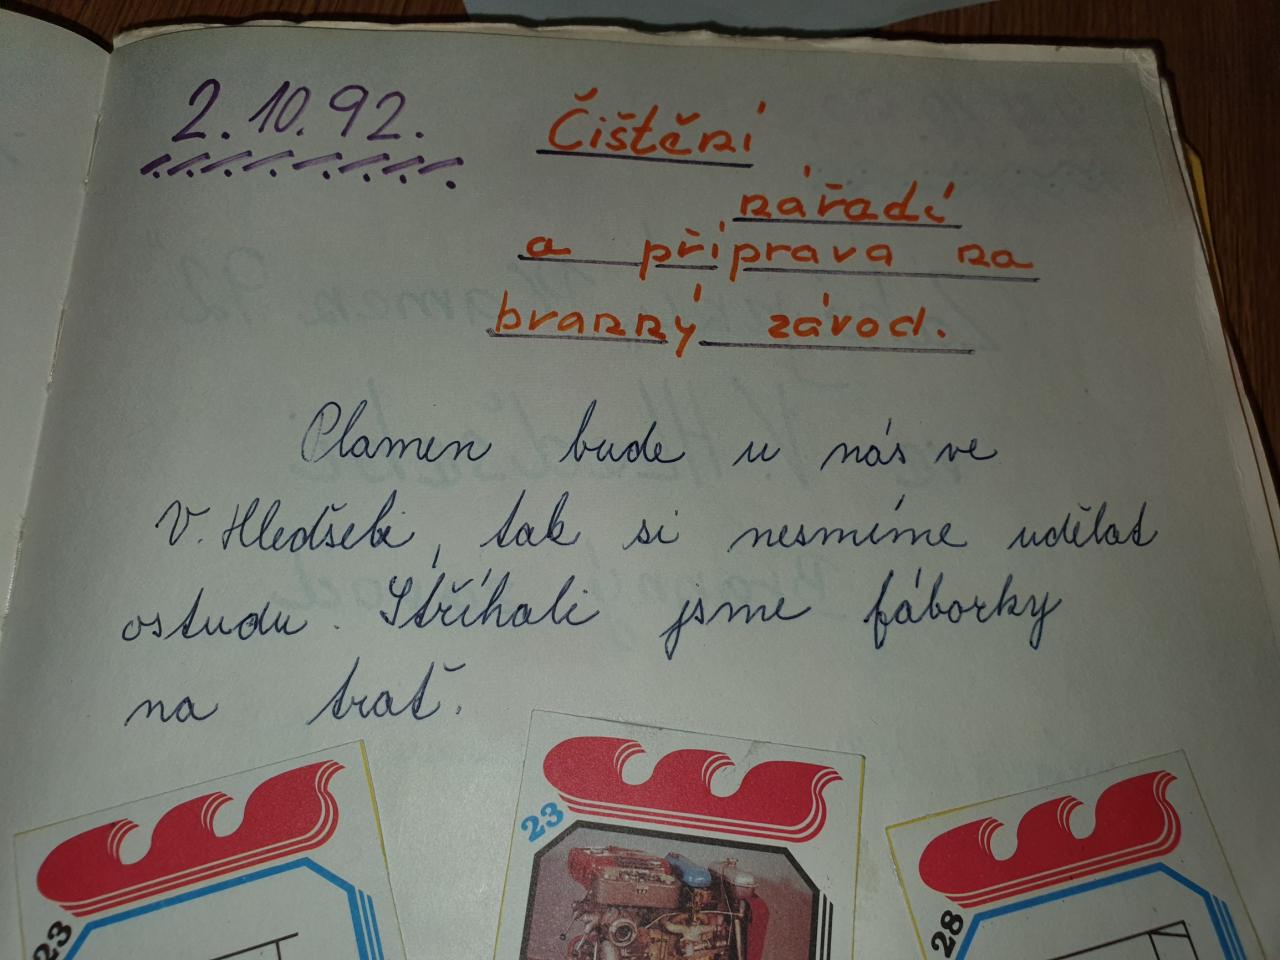 2.10.92.
Čištění
nářadí
a příprava na
branný závod.
Plamen bude u nás ve
V. Hledšebi, tak si nesmíme udělat
ostudu. Stříhali jsme fáborky
na trať.
23
23
28